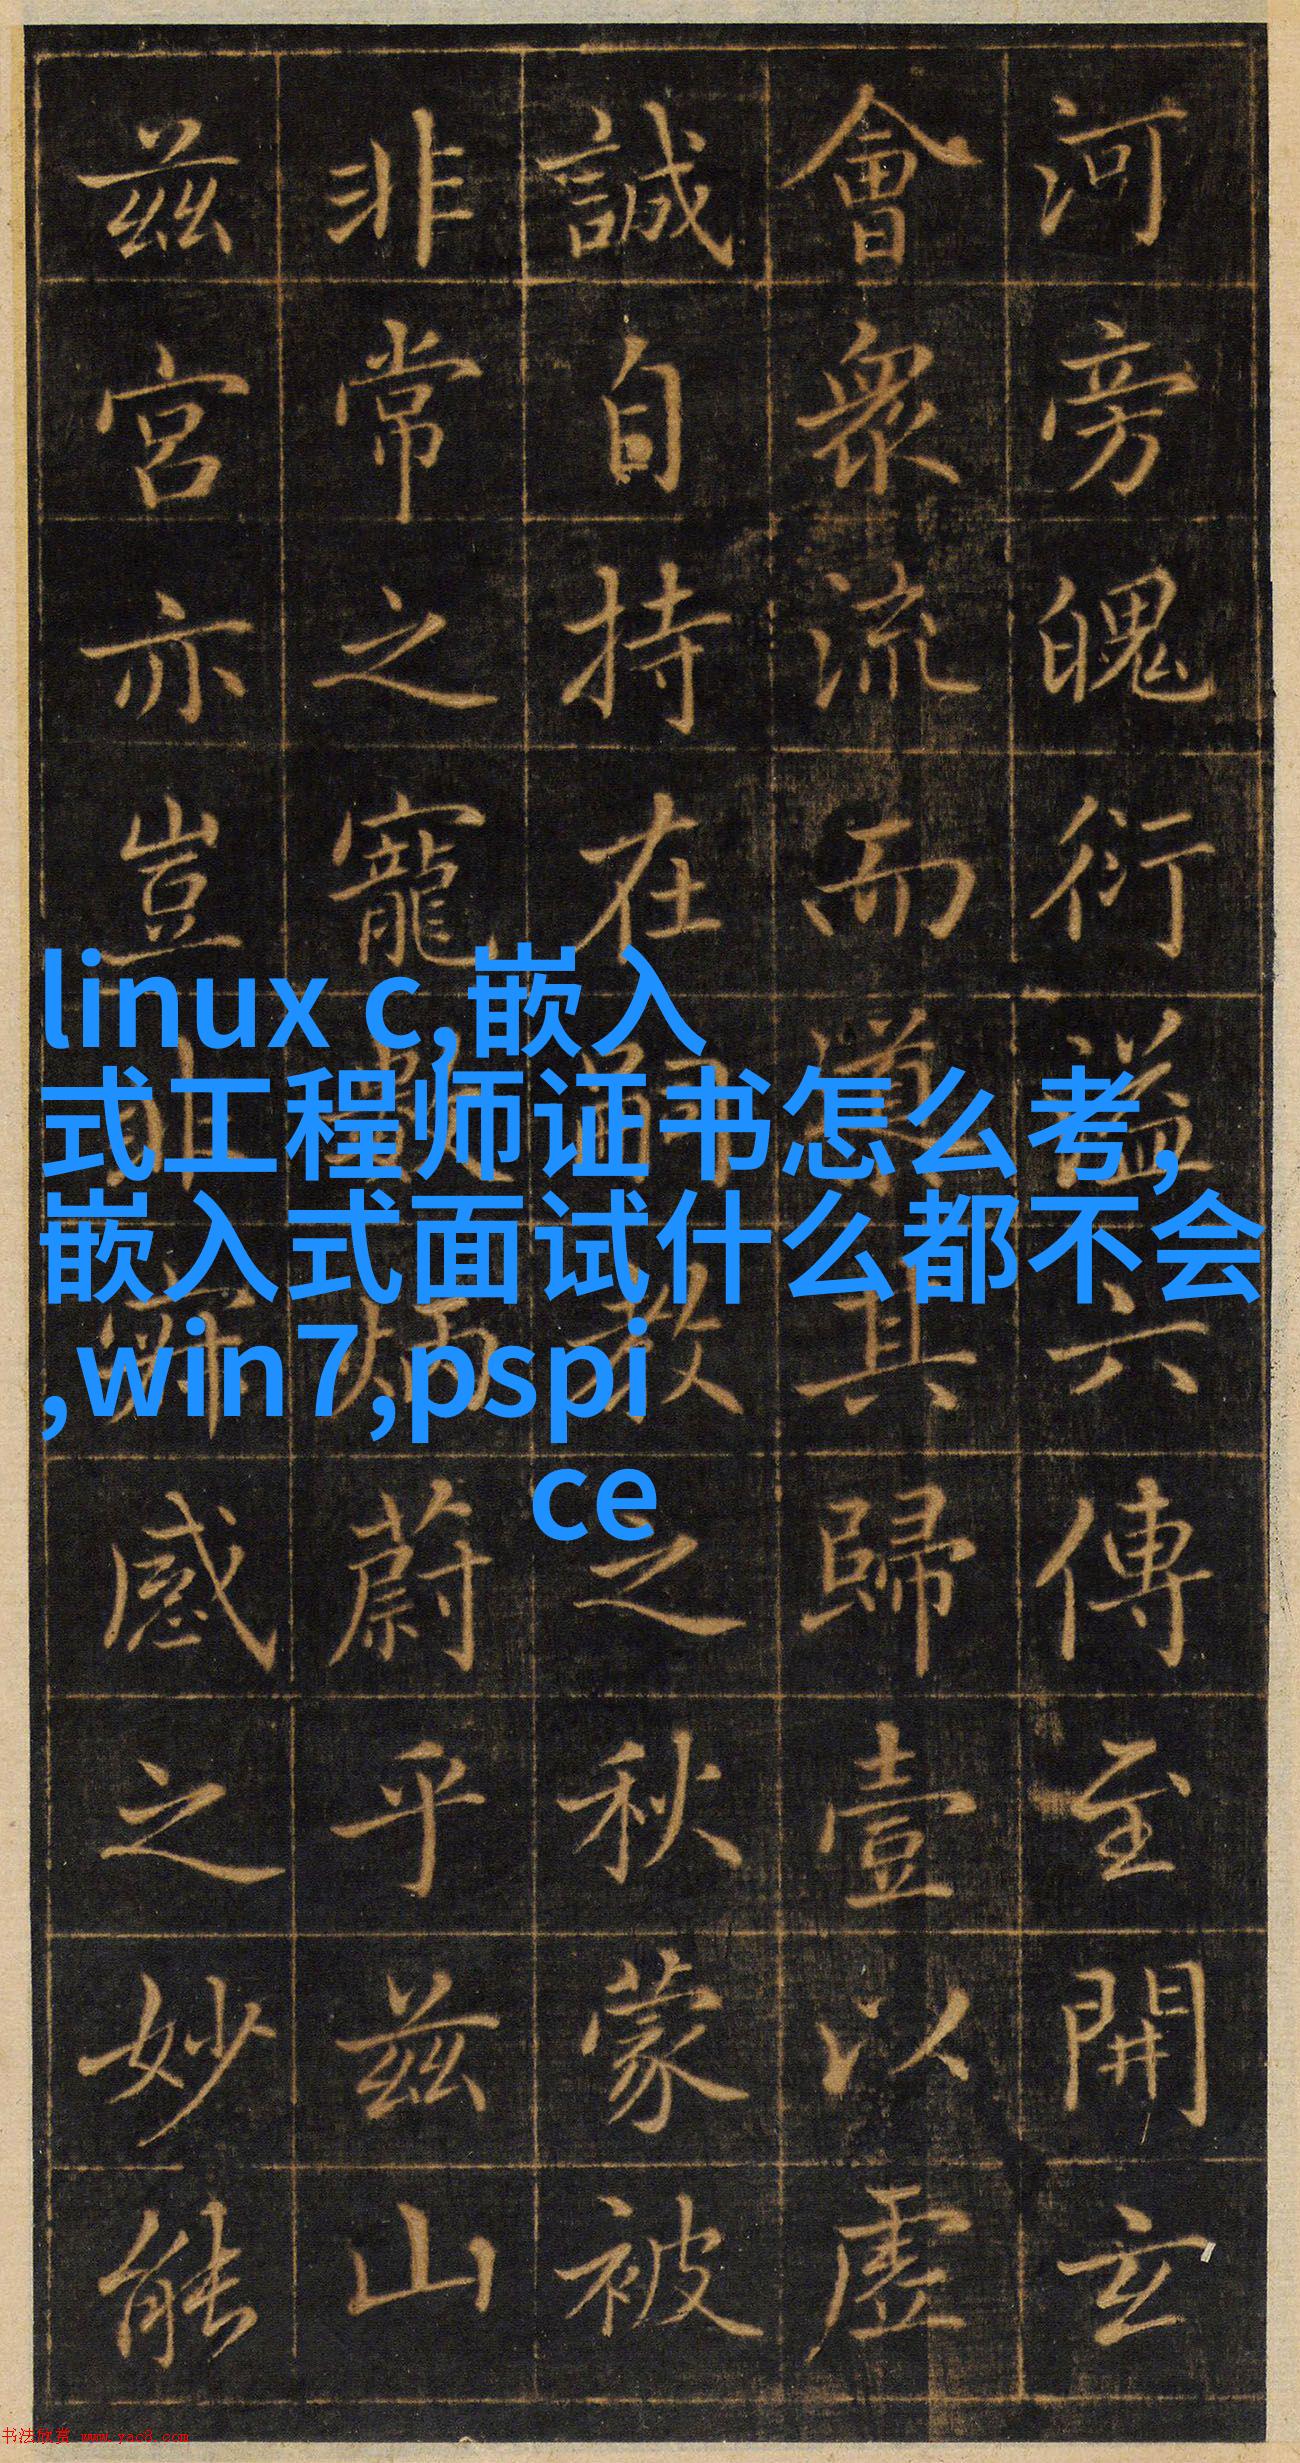 河旁魄衍溢六傳至開玄
會衆流而其歸壹以虛
誠自持在嗣教之秋蒙被
非常之寵炳蔚乎兹山
兹宮亦豈感之妙能
linux c,嵌入
式工程师证书怎么考,
嵌入式面试什么都不会
,win7,pspi
ce
书法欣赏 www.yac8.com